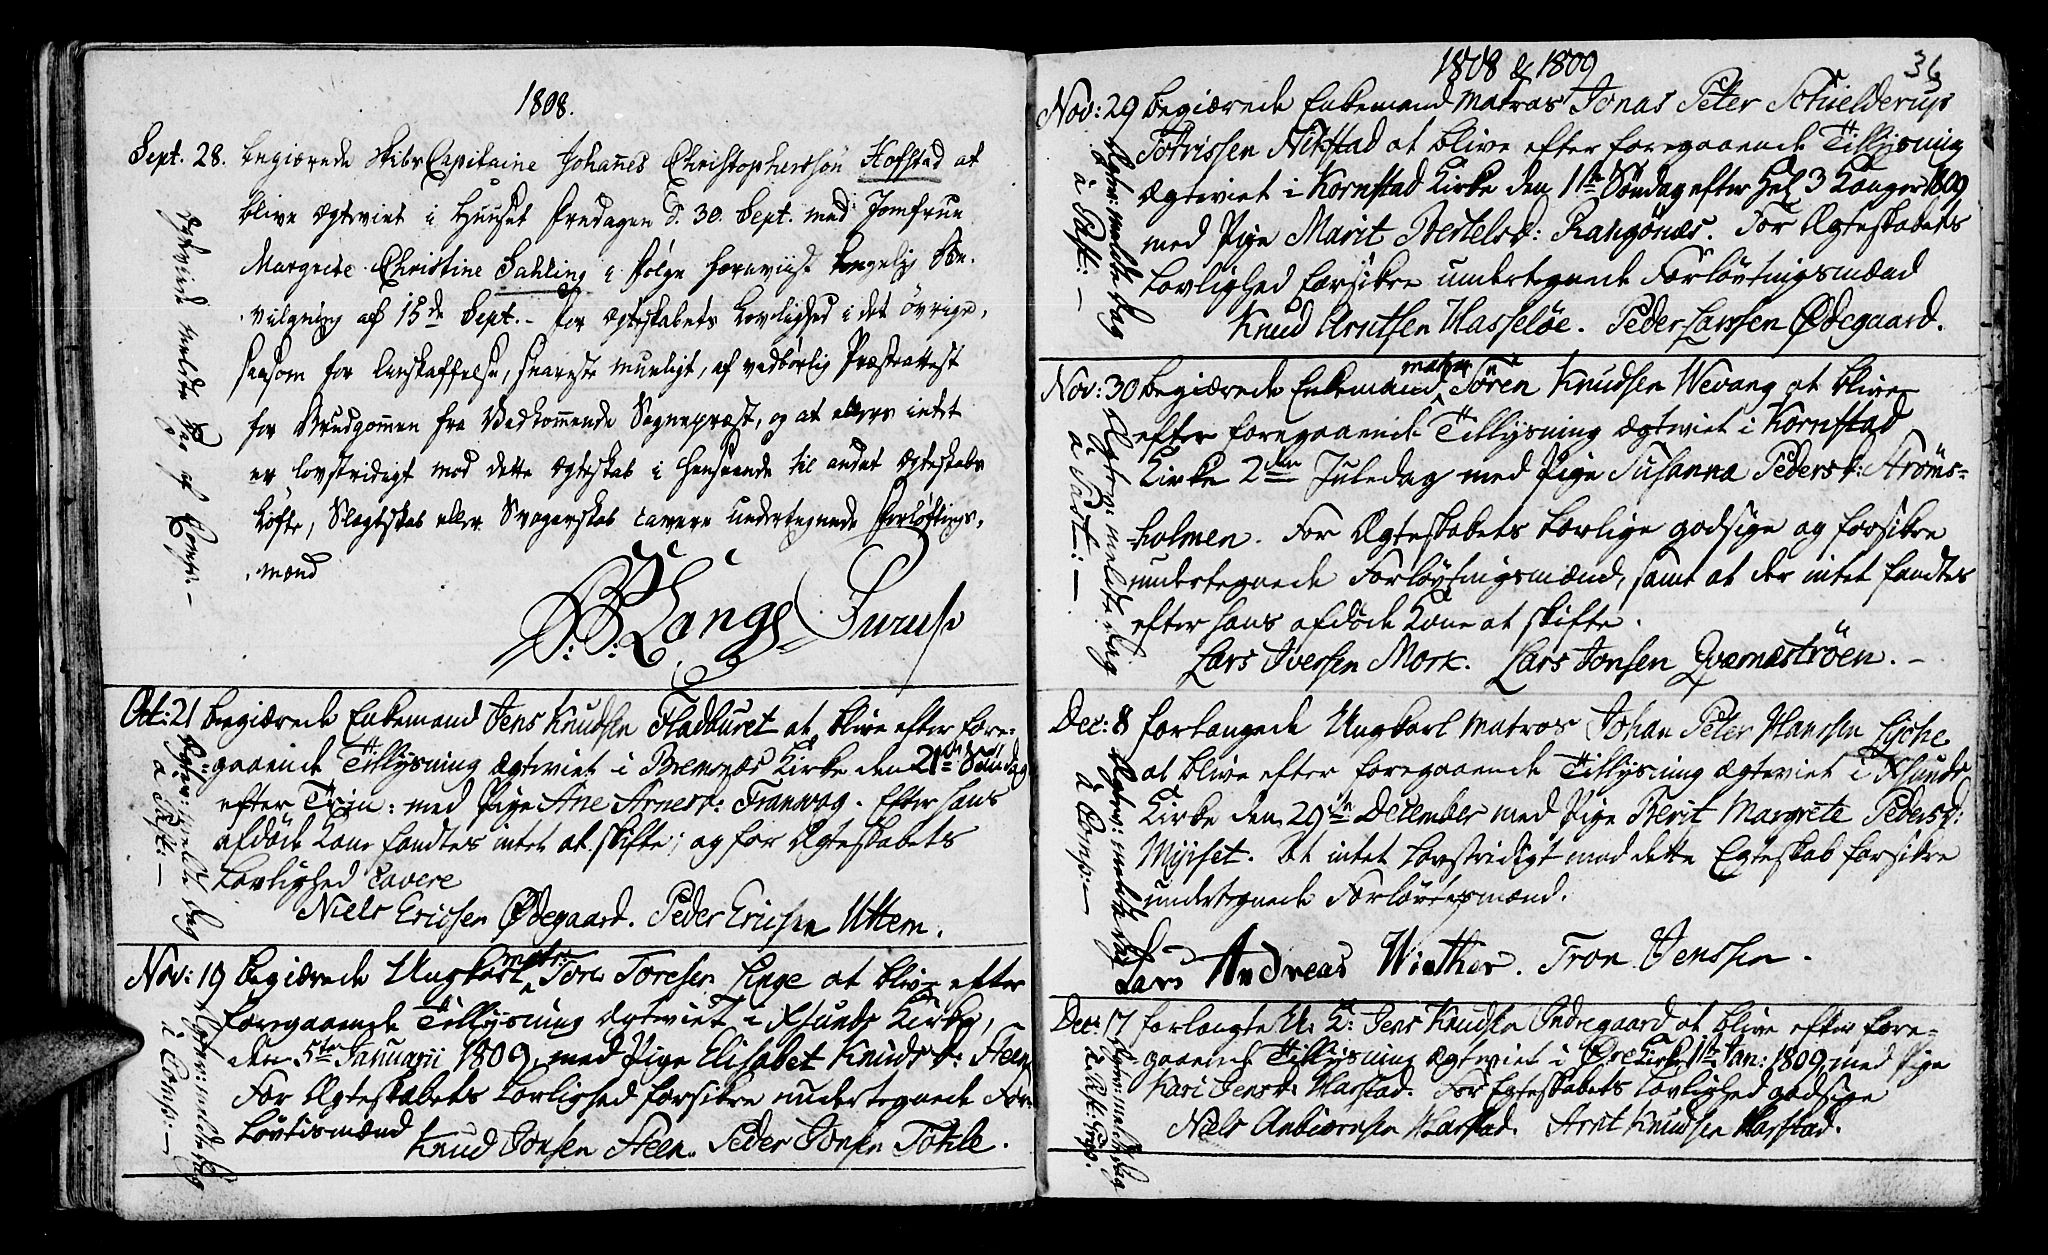 1808.
Sept. 28. begiærede Skibs Capitaine Johañes Christophersøn Hofstad at
blive Ægteviet i Huuset Fredagen d. 30. Sept. med Jomfrue
Margrete Christine Sahling i følge foreviist kongelig Be-
vilgning af 15de Sept. - for Ægteskabets Lovlighed i det øvrige,
saasom for Anskaffelse, snareste mueligt, af vedbørlig Præsteattest
for Brudgommen fra Vedkommende Sognepræst, og at ellers intet
er lovstridigt mod dette Ægteskab i henseende til andet Ægteskabs
Løfte, Slægtskab eller Svogerskab cavere undertegnede Forløftnings-
mænd
Ægteviede meldte Dag af
Lange
Oct: 21 begiærede Enkemand Jens Knudsen Fladburet at blive efter fore-
gaaende Tillysning Ægteviet i Bremsnæs Kirke den 21de Søndag
efter Trin: med Pige Ane Arnesd: Franvog. Efter hans
afdøde Kone fandtes intet at skifte; og for Ægteskabets
Lovlighed Cavere
Niels Ericsen Ødegaard. Peder Ericsen Uttem.
Ægtev: meldte Dag
Nov: 19 begiærede Ungkarl matr: Tore Toresen Enge at blive efter
foregaaende Tillysning Ægteviet i Xsunds Kirke,
den 5te Januarii 1809, med Pige Elisabet Knudsd: Steen
For Ægteskabets Lovlighed forsikre undertegnede For-
løvtismænd
Knud Jonsen Steen. Peder Jonsen Tøhle.
Ægtev: meldte Dag
1808 & 1809
36
Nov: 29 begiærede Enkemand Matros Jonas Peter Schielderups
Nikstad at blive efter foregaaende Tillysning
Ægteviet i Kornstad Kirke den 1te Søndag efter Hel 3 Konger 1809
med Pige Marit Bertelsd: Rangönæs. For Ægteskabets
Lovlighed forsikre undertegnede Forløvtningsmænd
Knud Arntsen Hasseløe. Peder Larssen Ødegaard.
Ægtev: meldte Dag
Nov: 30 begiærede Enkemand matros Sören Knudsen Wevang at blive
efter foregaaende Tillysning Ægteviet i Kornstad
Kirke 2den Juledag med Pige Susanna Pedersd: Ströms-
holmen. For Ægteskabets Lovlige godsige og forsikre
undertegnede Forløvtningsmænd, samt at der intet fandtes
efter hans afdöde Kone at skifte.
Lars Iversen Mork. Lars Jonsen Qverneströen.
Ægtev: meldte Dag
Dec: 8 forlangede Ungkarl Matros Johan Peter Hanssen Lyche
at blive efter foregaaende Tillysning Ægteviet i Xsunds
Kirke den 29de December med Pige Berit Margrete Pedersd:
Myhset. At intet Lovstridigt mod dette Egteskab forsikre
undertegnede Forløvtesmænd.
Lars Andreas Winther. Tron Jenssen.
Ægtev: meldte Dag
Dec: 17 forlangte U: K: Jens Knudsen Indregaard at blive efter fore-
gaaende Tillysning Ægteviet i Øre Kirke 1te Jan: 1809, med Pige
Kari Jensd: Harstad. For Egteskabets Lovlighed godsige
Niels Anbiörnsen Harstad. Arnt Knudsen Harstad.
Ægtev: meldte Dag